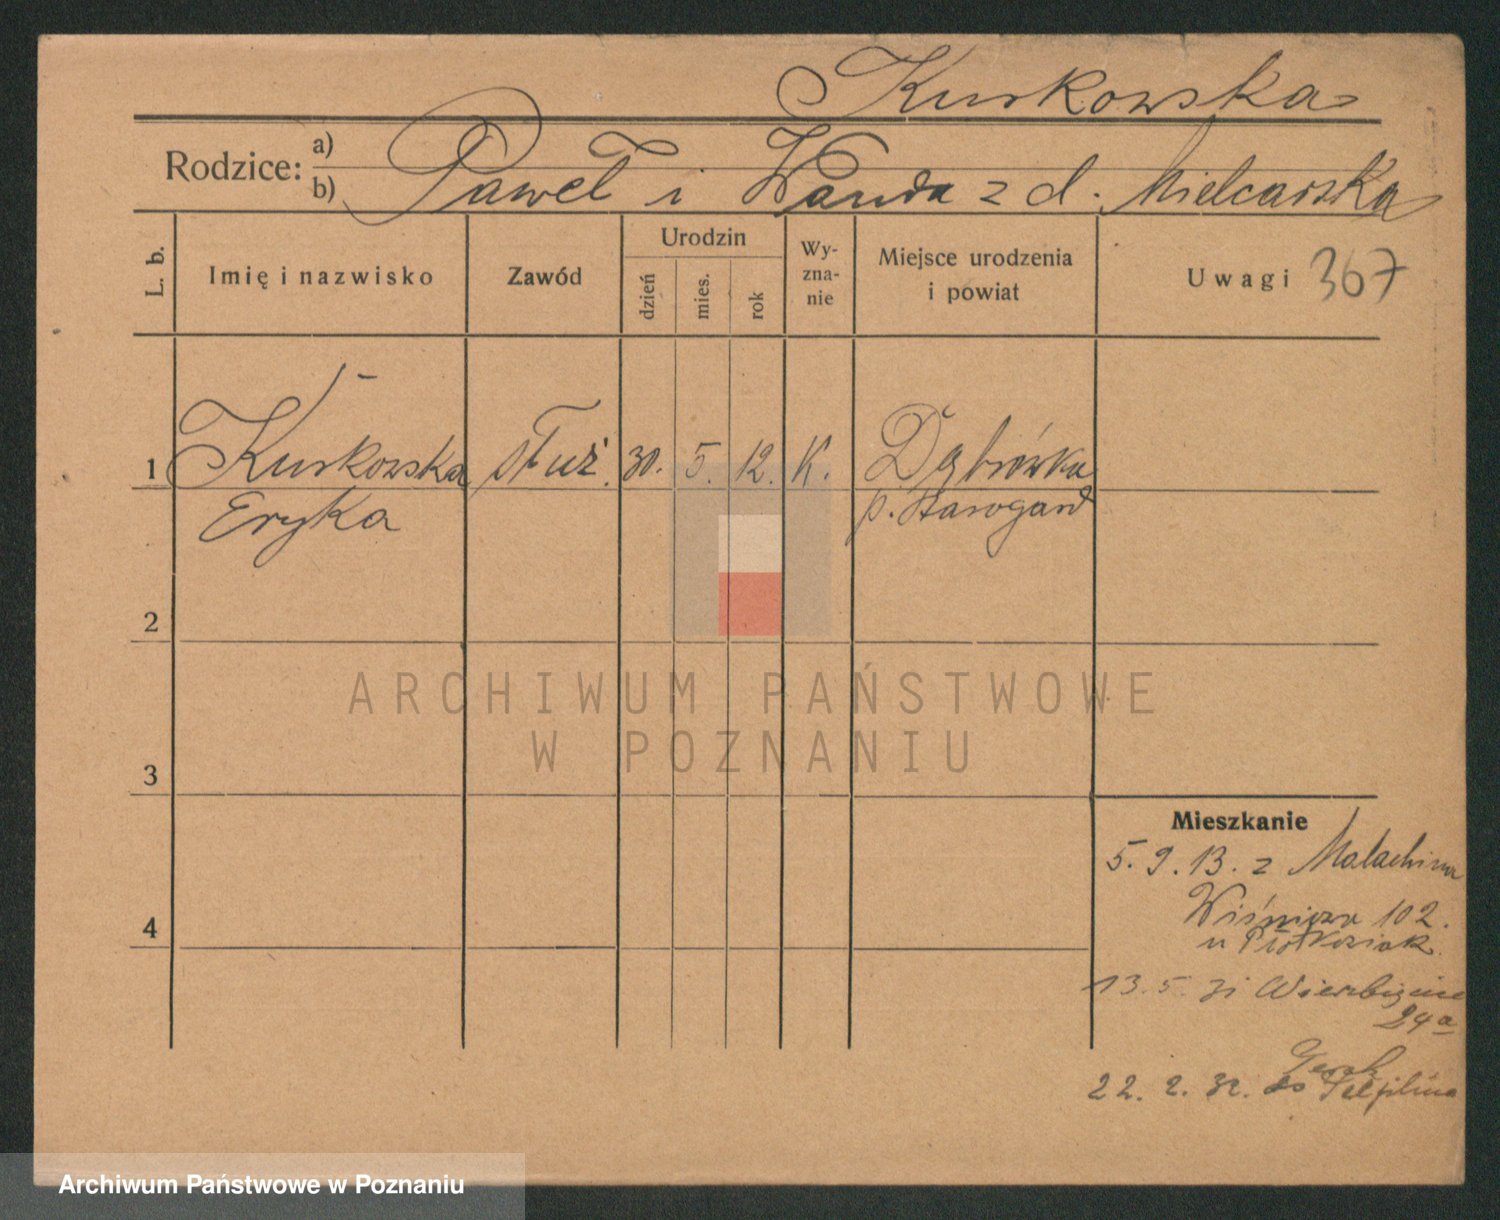 Kurkowska
Rodzice: a)
b) Paweł i Wanda z d. Mielcarska
L. b.
Imię i nazwisko
Zawód
Urodzin
dzień
mies.
rok
Wy-
zna-
nie
Miejsce urodzenia
i powiat
Uwagi 367
1 Kurkowska służ. 30. 5. 12. K. Dąbrówka
Eryka p. Starogard
2
3
4
ARCHIWUM PAŃSTWOWE
W POZNANIU
Mieszkanie
5. 9. 13. z Malachina
102.
u
13. 5. 31
24a
22. 2. 32. do Pelplina
Archiwum Państwowe w Poznaniu